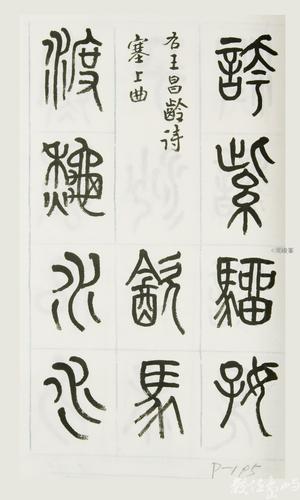 誇紫騮好
右王昌齡诗
塞上曲
飲馬
渡秋水水
P-195